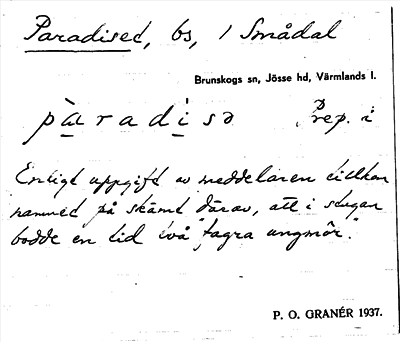 Paradiset, bs, / Smådal
Brunskogs sn, Jösse hd, Värmlands l.
pàradisə Prep. i
Enligt uppgift av meddelaren tillkom
namnet på skämt därav, att i stugan
bodde en tid två "fagra ungmör".
P. O. GRANÉR 1937.